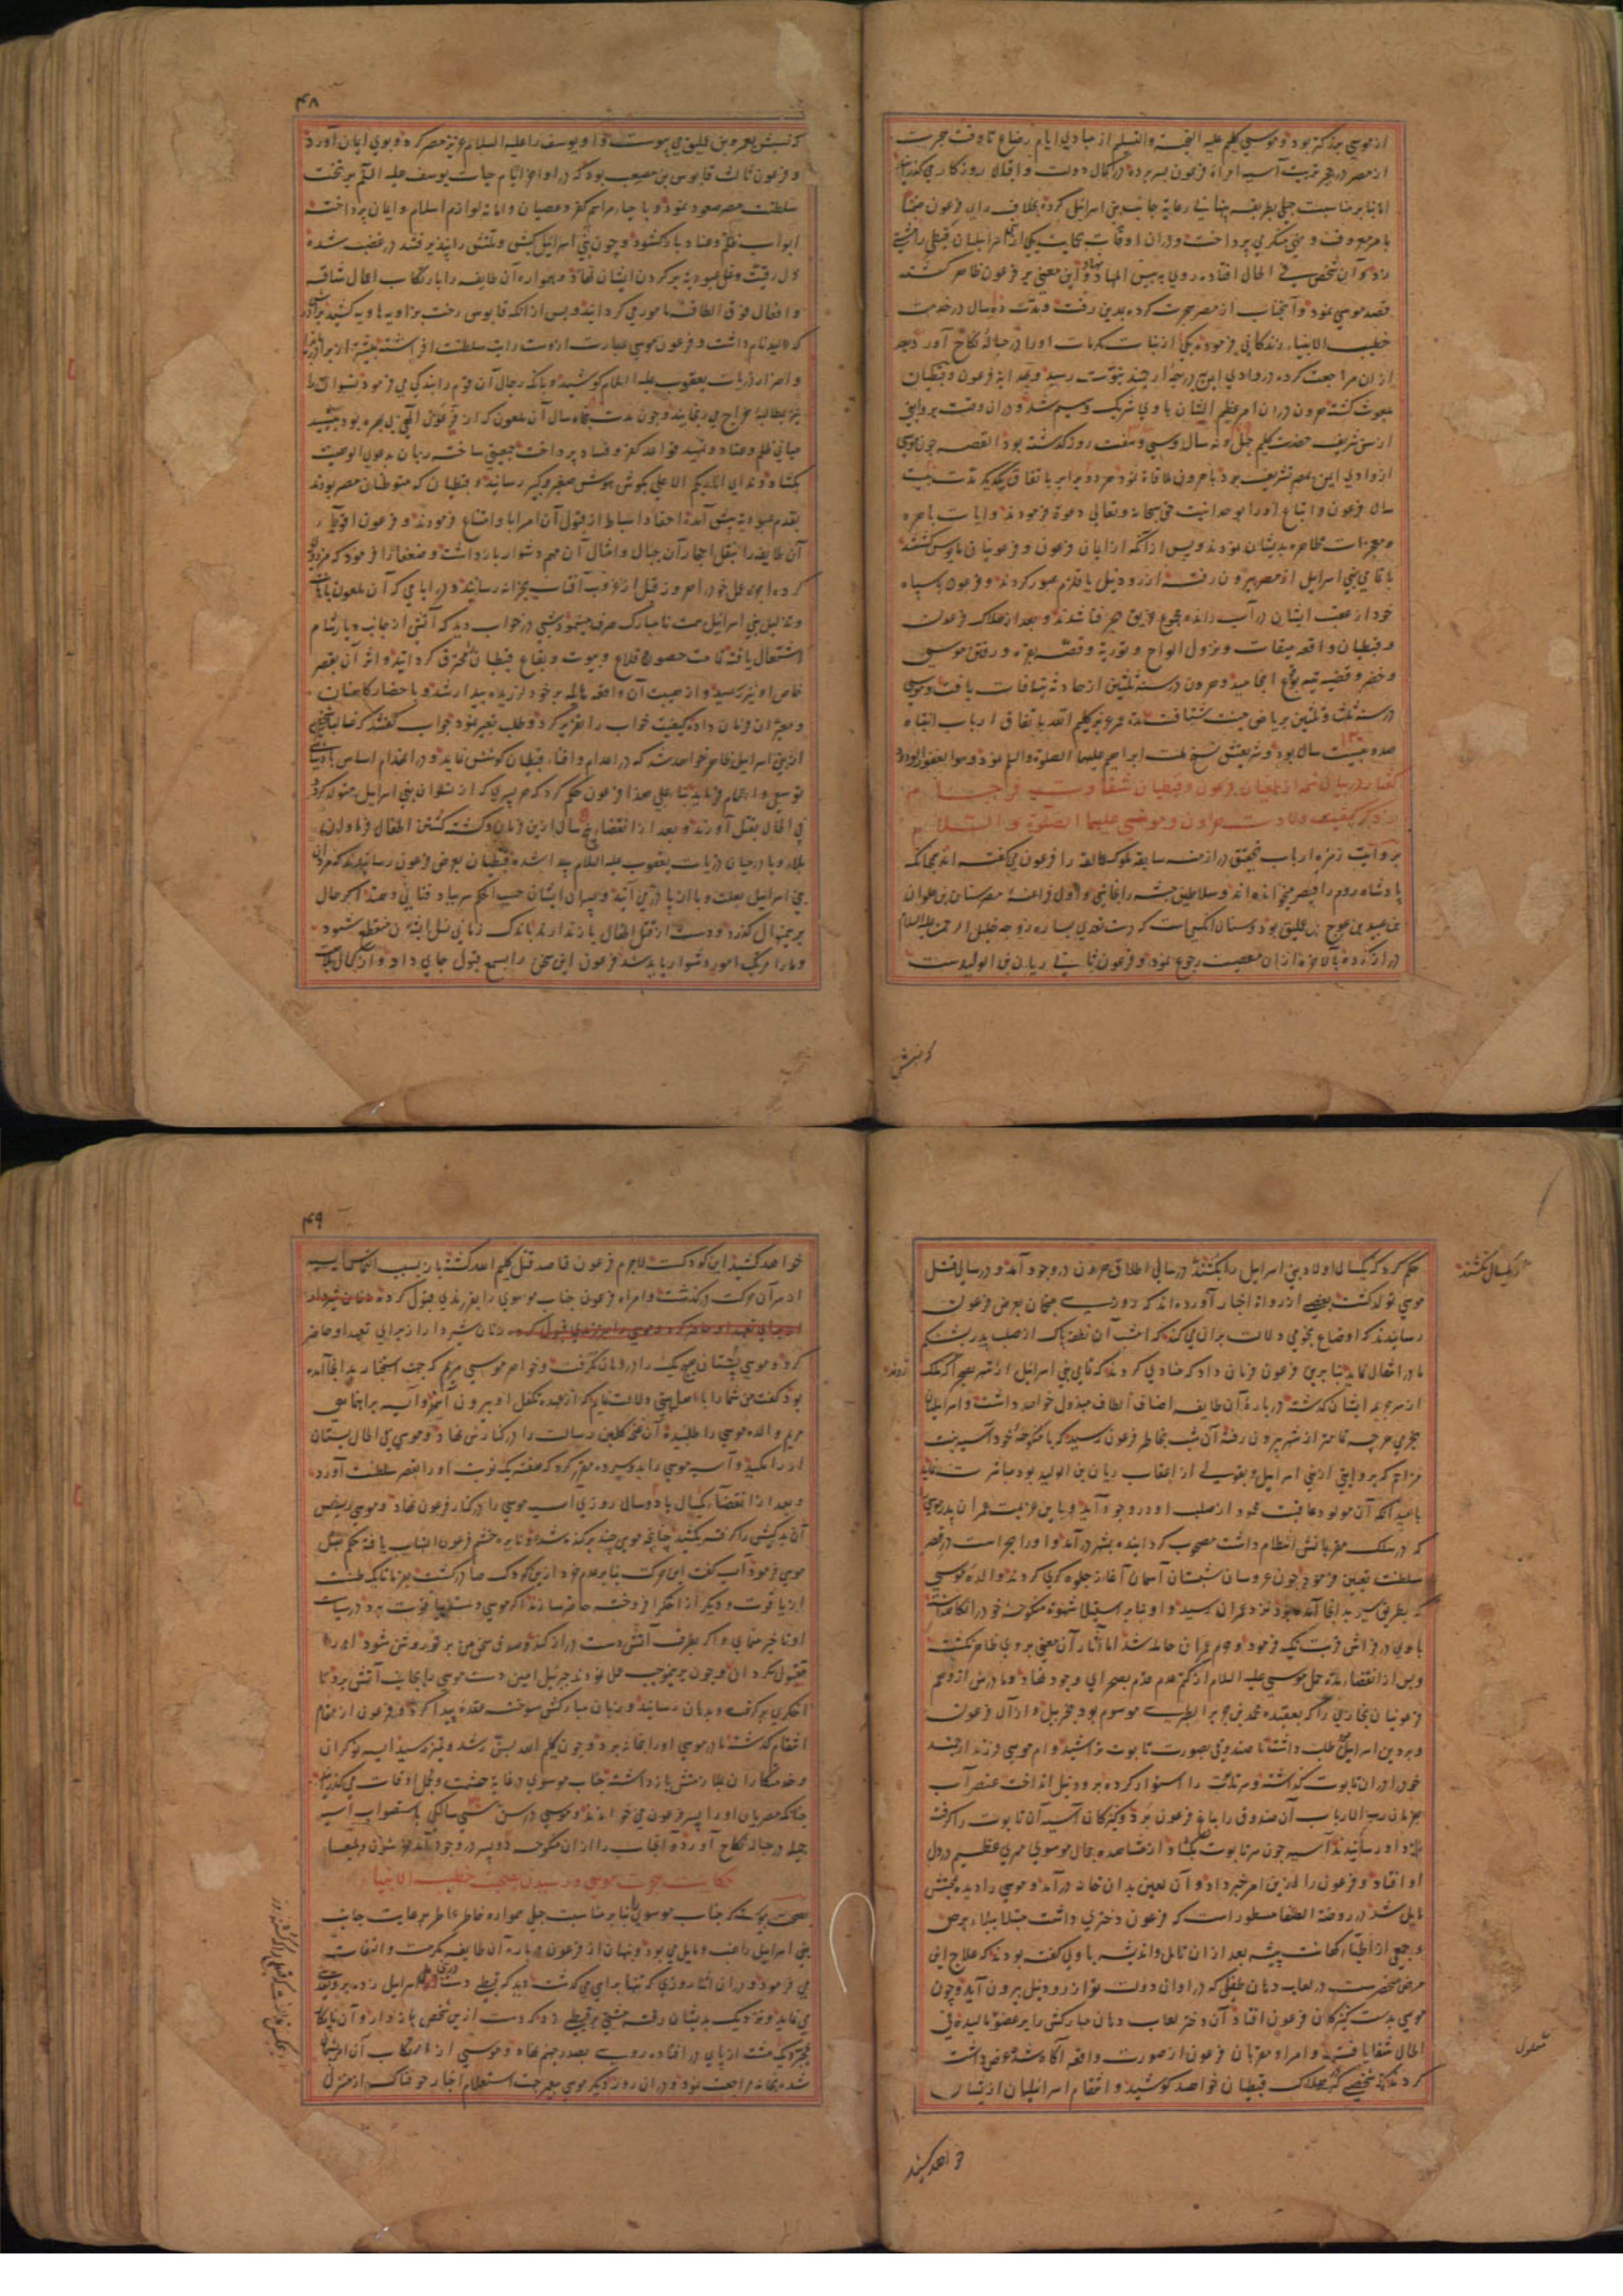 از موسی بزرگتر بود و موسی کلیم علیه التحیة والتسلیم از مبادی ایام رضاع تا وقت هجرت
از مصر در حجر تربیت آسیه امراة فرعون بسر برده در کمال دولت و اقبال روزگاری گذرانید
اما بنابر مناسبت جبلی بطریق پنهانی رعایة جانب بنی اسرائیل کرده بخلاف رای فرعون
بامر معروف و نهی منکر می پرداخت و در آن اوقات بحمایت یکی از اسرائیلیان قبطی را مشتی
زد و آن شخص فی الحال افتاده روی به بئس المهاد نهاد و این معنی بر فرعون ظاهر گشته
قصد موسی نمود و آنجناب از مصر هجرت کرده بمدین رفت و مدت ده سال در خدمت
خطیب الانبیاء زندگانی فرموده یکی از بنات مکرمات او را در حباله نکاح آورد و بعد
از آن مراجعت کرده در وادی ایمن بدرجه ارجمند نبوت رسید و بهدایة فرعون و قبطیان
مبعوث گشته هرون در آن امر عظیم الشان با وی شریک و سهیم شد و در آن وقت بروایتی
از سن شریف حضرت کلیم چهل و نه سال و سی و هفت روز گذشته بود القصه چون موسی
از وادی ایمن بمصر تشریف برد با هرون ملاقاة نمود هر دو برادر باتفاق یکدیگر مدت بیست
سال فرعون و اتباع او را بوحدانیت حق سبحانه و تعالی دعوة فرمودند و آیات باهره
و معجزات ظاهره بدیشان نمودند و پس از آنکه از ایمان فرعون و فرعونیان مایوس گشتند
با تمامی بنی اسرائیل از مصر بیرون رفته از رود نیل یا قلزم عبور کردند و فرعون با سپاه
خود از عقب ایشان در آب رانده مجموع غریق بحر فنا شدند و بعد از هلاک فرعون
و قبطیان واقعه میقات و نزول الواح و توریة و قصه بقره و رفتن موسی
و خضر و قضیه تیه بوقوع انجامید و هرون در سنه ثلثین از حادثه تیه وفات یافت و موسی
در سنه ثلث و ثلثین بریاض جنت شتافت مدة عمر عزیز کلیم الله باتفاق ارباب انتباه
صد و بیست سال بود و شریعتش نسخ ملت ابراهیم علیهما الصلوة والسلم نمود و هو الغفور الودود
گفتار در بیان شمه از طغیان فرعون و قبطیان شقاوت فرجام
و ذکر کیفیت ولادت هرون و موسی علیهما الصلوة والسلام
بروایت زمره ارباب تحقیق در ازمنه سابقه ملوک عمالقه را فرعون می گفته اند چنانکه
پادشاه روم را قیصر میخوانده اند و سلاطین حبشه را نجاشی و اول فراعنه مصر سنان بن علوان
بن عبید بن عوج بن عملیق بود و سنان آنکس است که دست تعدی بساره زوجه خلیل الرحمن علیه السلام
دراز کرده بالاخره از آن معصیت رجوع نمود و فرعون ثانی ریان بن الولید ست
که نسبش
۴۸
که نسبش بعمرو بن عملیق می پیوست و او یوسف را علیه السلام عزیز مصر کرده و بوی ایمان آورد
و فرعون ثالث قابوس بن مصعب بود که در اواخر ایام حیات یوسف علیه السلم بر تخت
سلطنت مصر صعود نمود و باحیاء مراسم کفر و عصیان و اماته لوازم اسلام و ایمان پرداخت
ابواب ظلم و عناد باز گشود و چون بنی اسرائیل کیش و ملتش را نپذیرفتند در غضب شده
ذل رقیت و غل عبودیة بر گردن ایشان نهاد و همواره آن طایفه را بارتکاب اعمال شاقه
و افعال فوق الطاقه مامور می گردانید و پس از آنکه قابوس رخت بزاویه هاویه کشید برادرش
که ولید نام داشت و فرعون موسی عبارت ازوست رایت سلطنت افراشته بیشتر از برادر در ایذا
و اضرار ذریات یعقوب علیه السلام کوشید و بآنکه رجال آن قوم را بندگی می فرمود نسوان را
نیز بمطالبه خراج می رنجانید و چون مدت پنجاه سال آن ملعون که از عون الهی بی بهره بود بتمهید
مبانی ظلم و عناد و تشیید قواعد کفر و فساد پرداخت جمعیتی ساخته زبان بدعوی الوهیت
بگشاد و ندای انا ربکم الاعلی بگوش هوش صغیر و کبیر رسانید و قبطیان که متوطنان مصر بودند
بقدم عبودیة پیش آمده احفاد اسباط از قبول آن امر ابا و امتناع فرمودند و فرعون اقویاء
آن طایفه را بنقل احجار آن جبال و امثال آن مهم دشوار بازداشت و ضعفا را فرمود که مزدوری
کرده اجرة عمل خود را هر روز قبل از غروب آفتاب بخزانه رسانند و در ایامی که آن ملعون باهانت
و تذلیل بنی اسرائیل همت نامبارک صرف مینمود شبی در خواب دید که آتشی از جانب دیار شام
اشتعال یافته تمامت حصون و قلاع و بیوت و بقاع قبطیان را محترق گردانید و اثر آن بقصر
خاص او نیز رسید و از هیبت آن واقعه هایله بر خود لرزیده بیدار شد و باحضار کاهنان
و معبران فرمان داده کیفیت خواب را تقریر کرد و طلب تعبیر نمود جواب گفتند که عنقریب شخصی
از بنی اسرائیل ظاهر خواهد شد که در اعدام و افناء قبطیان کوشش نماید و در انهدام اساس پادشاهی تو
توسعی و اهتمام فرماید بناء علی هذا فرعون حکم کرد که هر پسری که از نسوان بنی اسرائیل متولد گردد
فی الحال بقتل آورند و بعد از انقضاء پنج سال ازین فرمان و کشته گشتن اطفال فراوان
بلاء وبا در میان ذریات یعقوب علیه السلام پیدا شد و قبطیان بعرض فرعون رسانیدند که مردان
بنی اسرائیل بعلت وبا از پا در می آیند و پسران ایشان حسب الحکم سر بباد فنا می دهند اگر حال
برین منوال گذرد و دست از قتل اطفال باز ندارند باندک زمانی نسل ایشان منقطع شود
و ما را مرتکب امور دشوار باید شد فرعون این سخن را بسمع قبول جای داد و از کمال
حکم کرد که یکسال اولاد بنی اسرائیل را بکشند در سالی اطلاق هرون در وجود آمد و در سال قتل
که یکسال نکشند
موسی تولد گشت بعضی از رواة اخبار آورده اند که روزی منجمان بعرض فرعون
رسانیدند که اوضاع نجومی دلالت بر آن می کند که امشب آن نطفه پاک از صلب پدر بشکم
مادر انتقال نماید بنا برین فرعون فرمان داد که منادی کردند که تمامی بنی اسرائیل از شهر بصحرا روند که ملک
از سر جریمه ایشان گذشته در باره آن طایفه اصناف الطاف مبذول خواهد داشت و اسرائیلیان
بخرمی هر چه تمامتر از شهر بیرون رفته آن شب بخاطر فرعون رسید که با منکوحه خود آسیه بنت
مزاحم که بروایتی از بنی اسرائیل و بقولی از اعقاب ریان بن الولید بود مباشرت نماید
بامید آنکه آن مولود عاقبت محمود از صلب او در وجود آید و باین عزیمت عمران پدر موسی
که در سلک مقربانش انتظام داشت مصحوب گردانیده بشهر در آمد و او را بحراست در قصر
سلطنت تعیین فرمود چون عروسان شبستان آسمان آغاز جلوه گری کردند والده موسی
که بطریق سیر بدانجا آمده بود نزد عمران رسید و او بنابر استیلاء شهوة منکوحه خود را نگاه داشته
با وی در فراش قربت تکیه فرمود و هم عمران حامله شد اما آثار آن معنی بر وی ظاهر نگشت
و پس از انقضاء مدة حمل موسی علیه السلام از کتم عدم قدم بصحرای وجود نهاد و مادرش از وهم
فرعونیان نجاری را که بعقیده محمد بن جریر الطبری موسوم بود بحزبیل و از آل فرعون
و بر دین اسرائیل طلب داشته تا صندوقی بصورت تابوت تراشید و ام موسی فرزند ارجمند
خود را در آن تابوت گذاشته و سر تابوت را استوار کرده برود نیل انداخت عنصر آب
بفرمان رب الارباب آن صندوق را بباغ فرعون برد و کنیزکان آسیه آن تابوت را گرفته
نزد او رسانیدند آسیه چون سر تابوت بگشاد از مشاهده جمال موسوی مهری عظیم در دل
او افتاد و فرعون را ازین امر خبر داد و آن لعین بدان خانه در آمد و موسی را دیده بمحبتش
مایل شد در روضة الصفا مسطور است که فرعون دختری داشت مبتلا ببلاء برص
و جمعی از اطباء کهانت پیشه بعد از آن تامل و اندیشه با وی گفته بودند که علاج این
مرض منحصرست در لعاب دهان طفلی که در اوان دولت تو از رود نیل بیرون آید و چون
موسی بدست کنیزکان فرعون افتاد آن دختر لعاب دهان مبارکش را بر عضو مالیده فی
الحال شفا یافت و امرا و مقربان فرعون از صورت واقعه آگاه شده عرضه داشت
کردند که شخصی که بهلاک قبطیان خواهد کوشید و انتقام اسرائیلیان از تبار
خواهد کشید
۴۹
خواهد کشید این کودکست لاجرم فرعون قاصد قتل کلیم الله گشته باز بسبب التماس آسیه
از سر آن حرکت درگذشت و امراة فرعون جناب موسوی را بفرزندی قبول کرده
زنان شیردار را از برای تعهد او حاضر
کرد و موسی پستان هیچ یک را در دهان نگرفت و خواهر موسی مریم که جهت استخبار بدانجا آمده
بود گفت من شما را باهل بیتی دلالت نمایم که از عهده تکفل او بیرون آیند و آسیه براهنمایی
مریم والده موسی را طلبیده آن نخل گلبن رسالت را در کنارش نهاد و موسی فی الحال پستان
او را مکید و آسیه موسی را بدو سپرده مقرر کرد که هفته یک نوبت او را بقصر سلطنت آورد
و بعد از انقضاء یکسال یا دو سال روزی آسیه موسی را در کنار فرعون نهاد و موسی ریش
آن بدکیش را گرفته بکشید چنانچه مویی چند برکنده شد و نایره خشم فرعون التهاب یافته حکم بقتل
موسی فرمود آسیه گفت این حرکت بنابر عدم خرد ازین کودک صادر گشت بفرما تا یک طشت
از یاقوت و دیگر از اخگر افروخته حاضر سازند اگر موسی دست بیاقوت برد در سیاست
او تاخیر منمای و اگر بطرف آتش دست دراز کند و صدق سخن من بر تو روشن شود او را
مقتول مگردان و چون برینموجب عمل نمودند جبرئیل امین دست موسی را بجانب آتش برد تا
اخگری برگرفت و بدهان رسانید و زبان مبارکش سوخته عقده پیدا کرد و فرعون از مقام
انتقام گذشته مادر موسی او را بخانه برد و چون کلیم الله بسن رشد و تمیز رسید آسیه نوکران
و خدمتکاران بملازمتش بازداشته جناب موسوی در غایة حشمت و تجمل اوقات می گذرانید
چنانکه مصریان او را پسر فرعون می خواندند و موسی در سن سی سالگی باستصواب آسیه
جمیله در حباله نکاح آورده آنجناب را از آن منکوحه دو پسر در وجود آمد
حکایت هجرت موسی و رسیدن بصحبت خطیب الانبیاء
بصحت پیوسته که جناب موسوی بنا بر مناسبت جبلی همواره خاطر عاطر برعایت جانب
بنی اسرائیل راغب و مایل می بود و پنهان از فرعون در باره آن طایفه مکرمت و التفات
می فرمود و در آن اثنا روزی که تنها براهی می گذشت دید که قبطی دست اسرائیلی زده
می نماید و نزدیک بدیشان رفته مشتی بر قبطی زد که دست ازین شخص باز دار و آن ناپاک
بمجرد یک مشت از پای در افتاده روی بصدر جهنم نهاد و موسی از ارتکاب آن امر پشیمان
شده بخانه مراجعت نمود و در آن روز دیگر موسی بعد جهت استعلام اخبار خوفناک از منزل